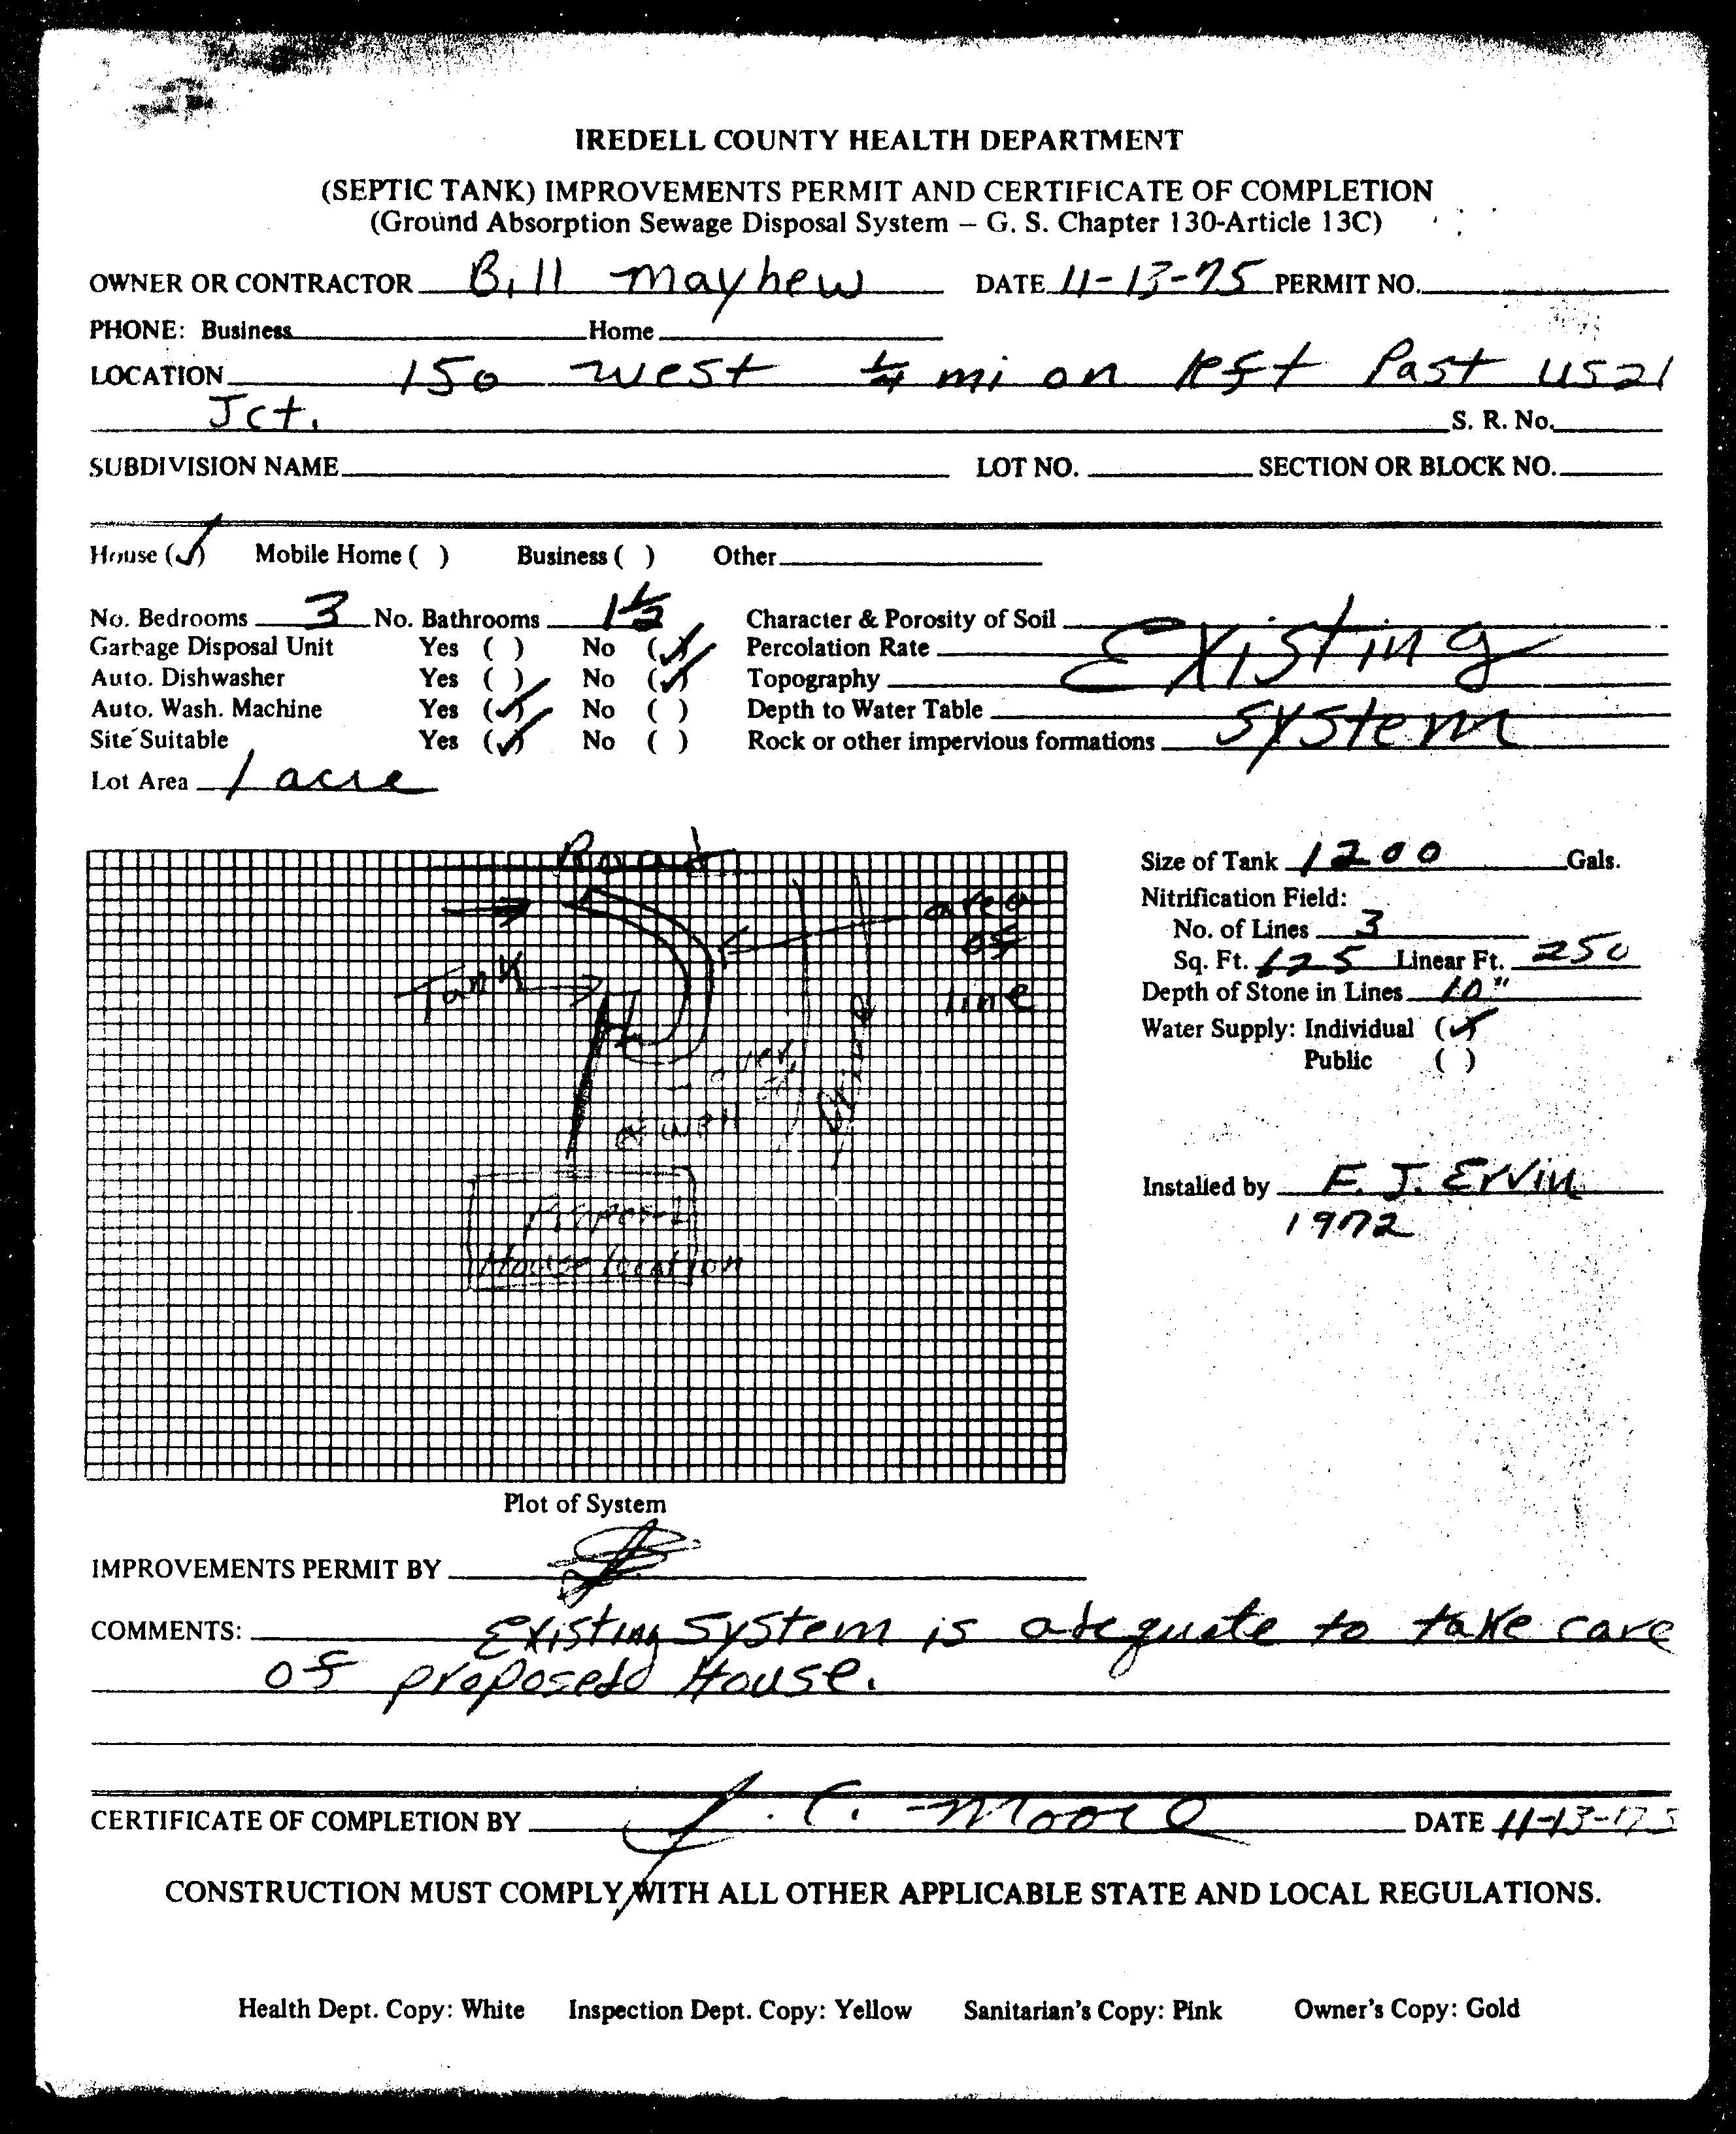 IREDELL COUNTY HEALTH DEPARTMENT
(SEPTIC TANK) IMPROVEMENTS PERMIT AND CERTIFICATE OF COMPLETION
(Ground Absorption Sewage Disposal System – G. S. Chapter 130-Article 13C)
OWNER OR CONTRACTOR Bill Mayhew DATE 11-13-75 PERMIT NO.
PHONE: Business Home
LOCATION 150 West 1/4 mi on left Past US21
Jct. S. R. No.
SUBDIVISION NAME LOT NO. SECTION OR BLOCK NO.
House (✓) Mobile Home ( ) Business ( ) Other
No. Bedrooms 3 No. Bathrooms 1 1/2 Character & Porosity of Soil
Garbage Disposal Unit Yes ( ) No (✓) Percolation Rate Existing
Auto. Dishwasher Yes ( ) No (✓) Topography
Auto. Wash. Machine Yes (✓) No ( ) Depth to Water Table System
Site Suitable Yes (✓) No ( ) Rock or other impervious formations
Lot Area 1 acre
Road
area
of
line
Tank
Drive
well
House location
Size of Tank 1200 Gals.
Nitrification Field:
No. of Lines 3
Sq. Ft. 625 Linear Ft. 250
Depth of Stone in Lines 10"
Water Supply: Individual (✓)
Public ( )
Installed by F. J. Ervin
1972
Plot of System
IMPROVEMENTS PERMIT BY
COMMENTS: Existing System is adequate to take care
of proposed House.
CERTIFICATE OF COMPLETION BY J. C. Moore DATE 11-13-75
CONSTRUCTION MUST COMPLY WITH ALL OTHER APPLICABLE STATE AND LOCAL REGULATIONS.
Health Dept. Copy: White Inspection Dept. Copy: Yellow Sanitarian's Copy: Pink Owner's Copy: Gold